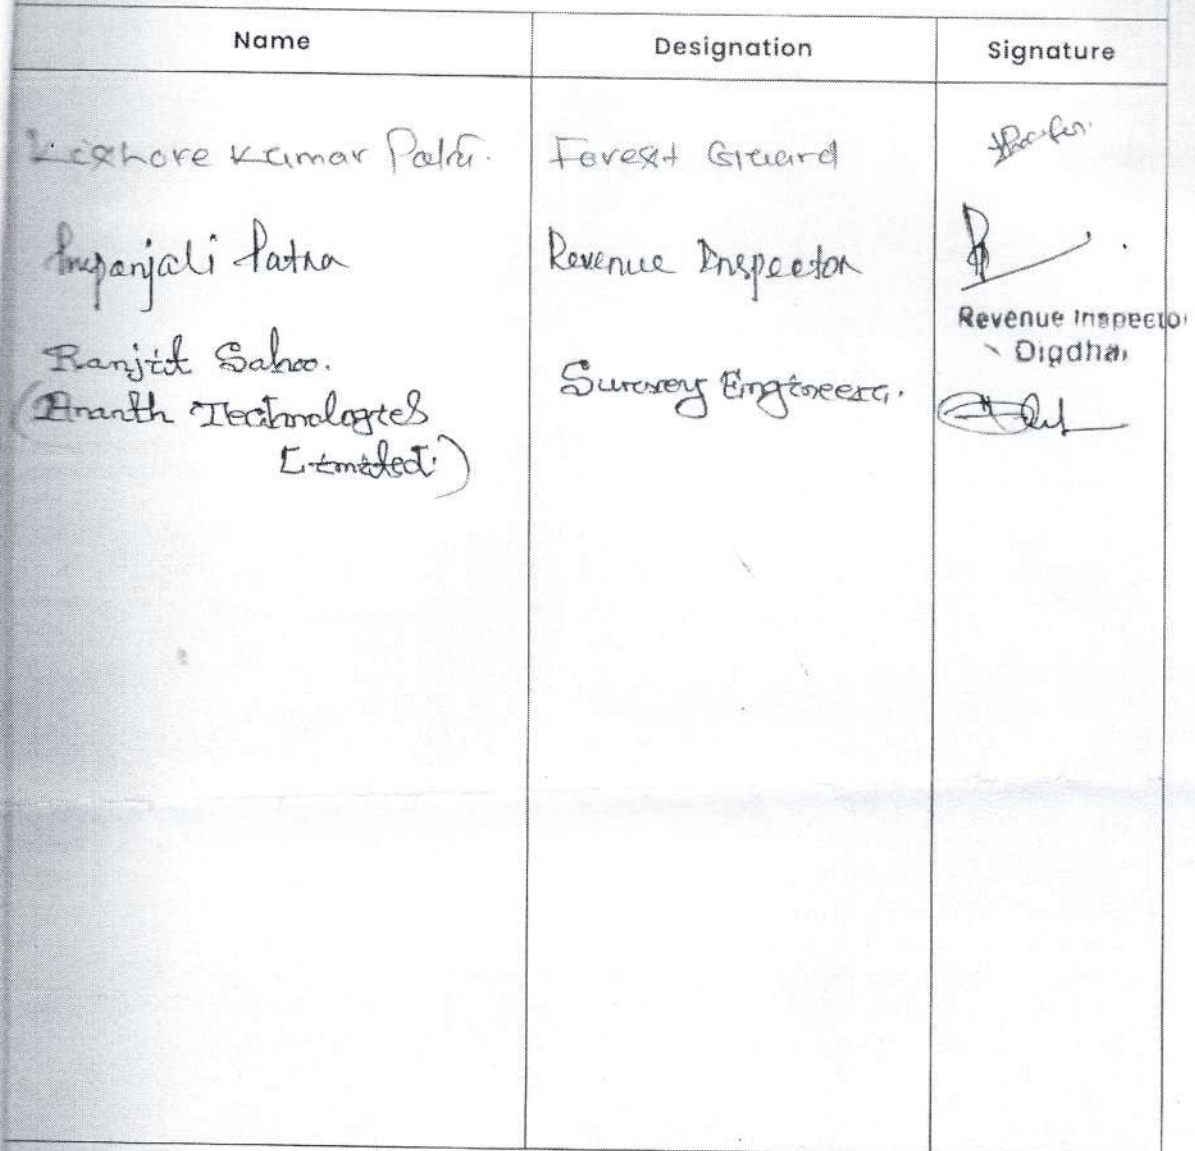 Name Designation Signature
Kishore Kumar Patra. Forest Guard
Patra Revenue Inspector
Revenue Inspector
Digdhar
Ranjit Sahoo.
(Ananth Technologies Survey Engineer.
Limited.)